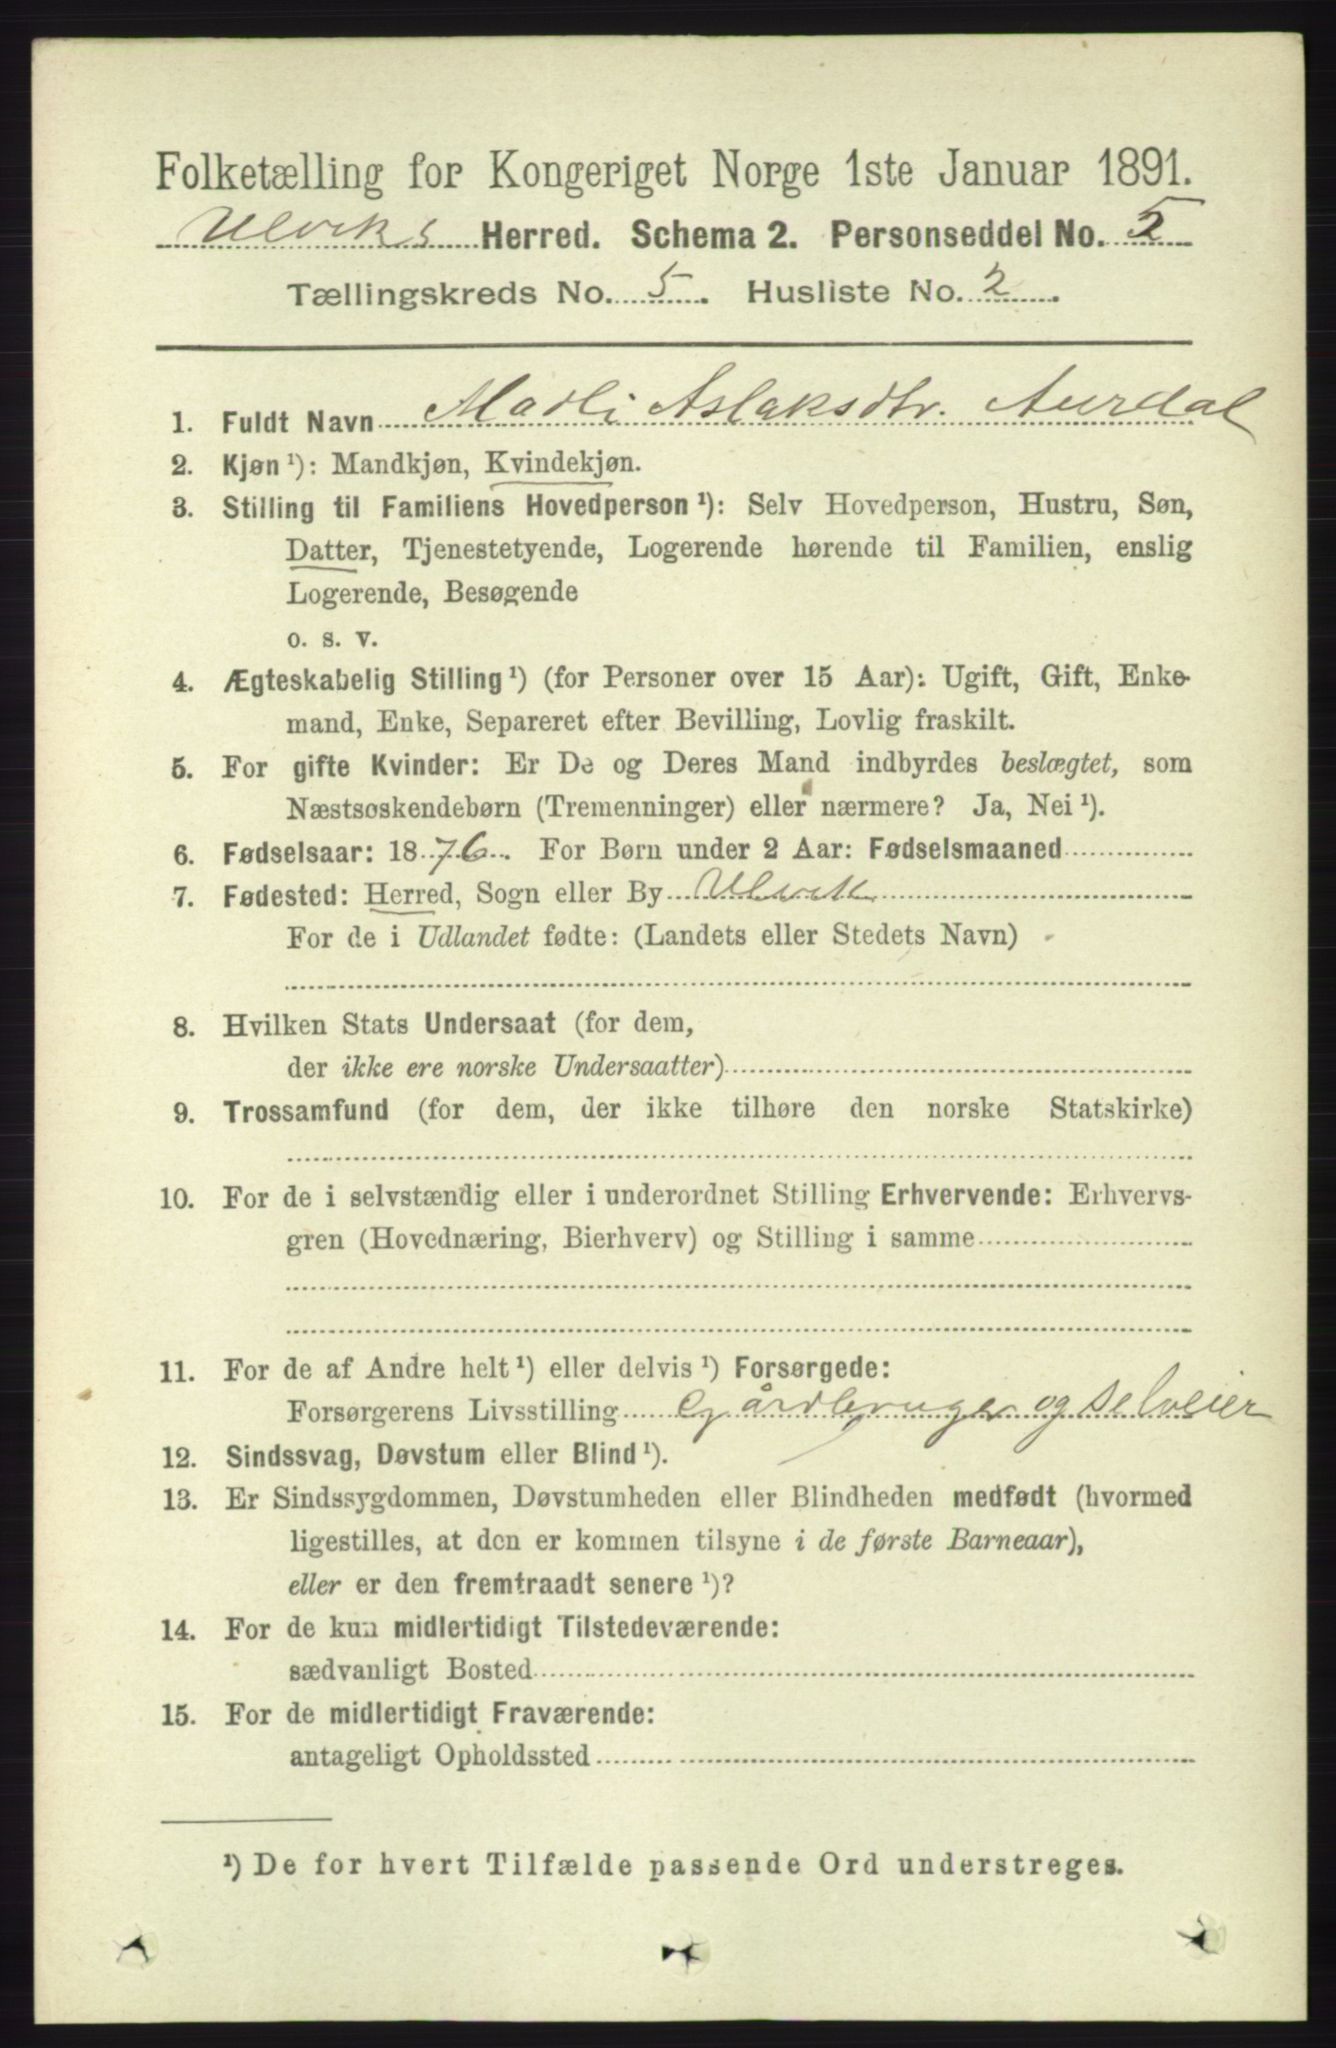 Folketælling for Kongeriget Norge 1ste Januar 1891.
Ulviks Herred. Schema 2. Personseddel No. 5
Tællingskreds No. 5. Husliste No. 2
1. Fuldt Navn Madli Aslaksdtr. Aurdal
2. Kjøn¹): Mandkjøn, Kvindekjøn.
3. Stilling til Familiens Hovedperson¹): Selv Hovedperson, Hustru, Søn,
Datter, Tjenestetyende, Logerende hørende til Familien, enslig
Logerende, Besøgende
o. s. v.
4. Ægteskabelig Stilling¹) (for Personer over 15 Aar): Ugift, Gift, Enke-
mand, Enke, Separeret efter Bevilling, Lovlig fraskilt.
5. For gifte Kvinder: Er De og Deres Mand indbyrdes beslægtet, som
Næstsøskendebørn (Tremenninger) eller nærmere? Ja, Nei¹).
6. Fødselsaar: 1876. For Børn under 2 Aar: Fødselsmaaned
7. Fødested: Herred, Sogn eller By Ulvik
For de i Udlandet fødte: (Landets eller Stedets Navn)
8. Hvilken Stats Undersaat (for dem,
der ikke ere norske Undersaatter)
9. Trossamfund (for dem, der ikke tilhøre den norske Statskirke)
10. For de i selvstændig eller i underordnet Stilling Erhvervende: Erhvervs-
gren (Hovednæring, Bierhverv) og Stilling i samme
11. For de af Andre helt¹) eller delvis¹) Forsørgede:
Forsørgerens Livsstilling Gårdbruger og selveier
12. Sindssvag, Døvstum eller Blind¹).
13. Er Sindssygdommen, Døvstumheden eller Blindheden medfødt (hvormed
ligestilles, at den er kommen tilsyne i de første Barneaar),
eller er den fremtraadt senere¹)?
14. For de kun midlertidigt Tilstedeværende:
sædvanligt Bosted
15. For de midlertidigt Fraværende:
antageligt Opholdssted
¹) De for hvert Tilfælde passende Ord understreges.